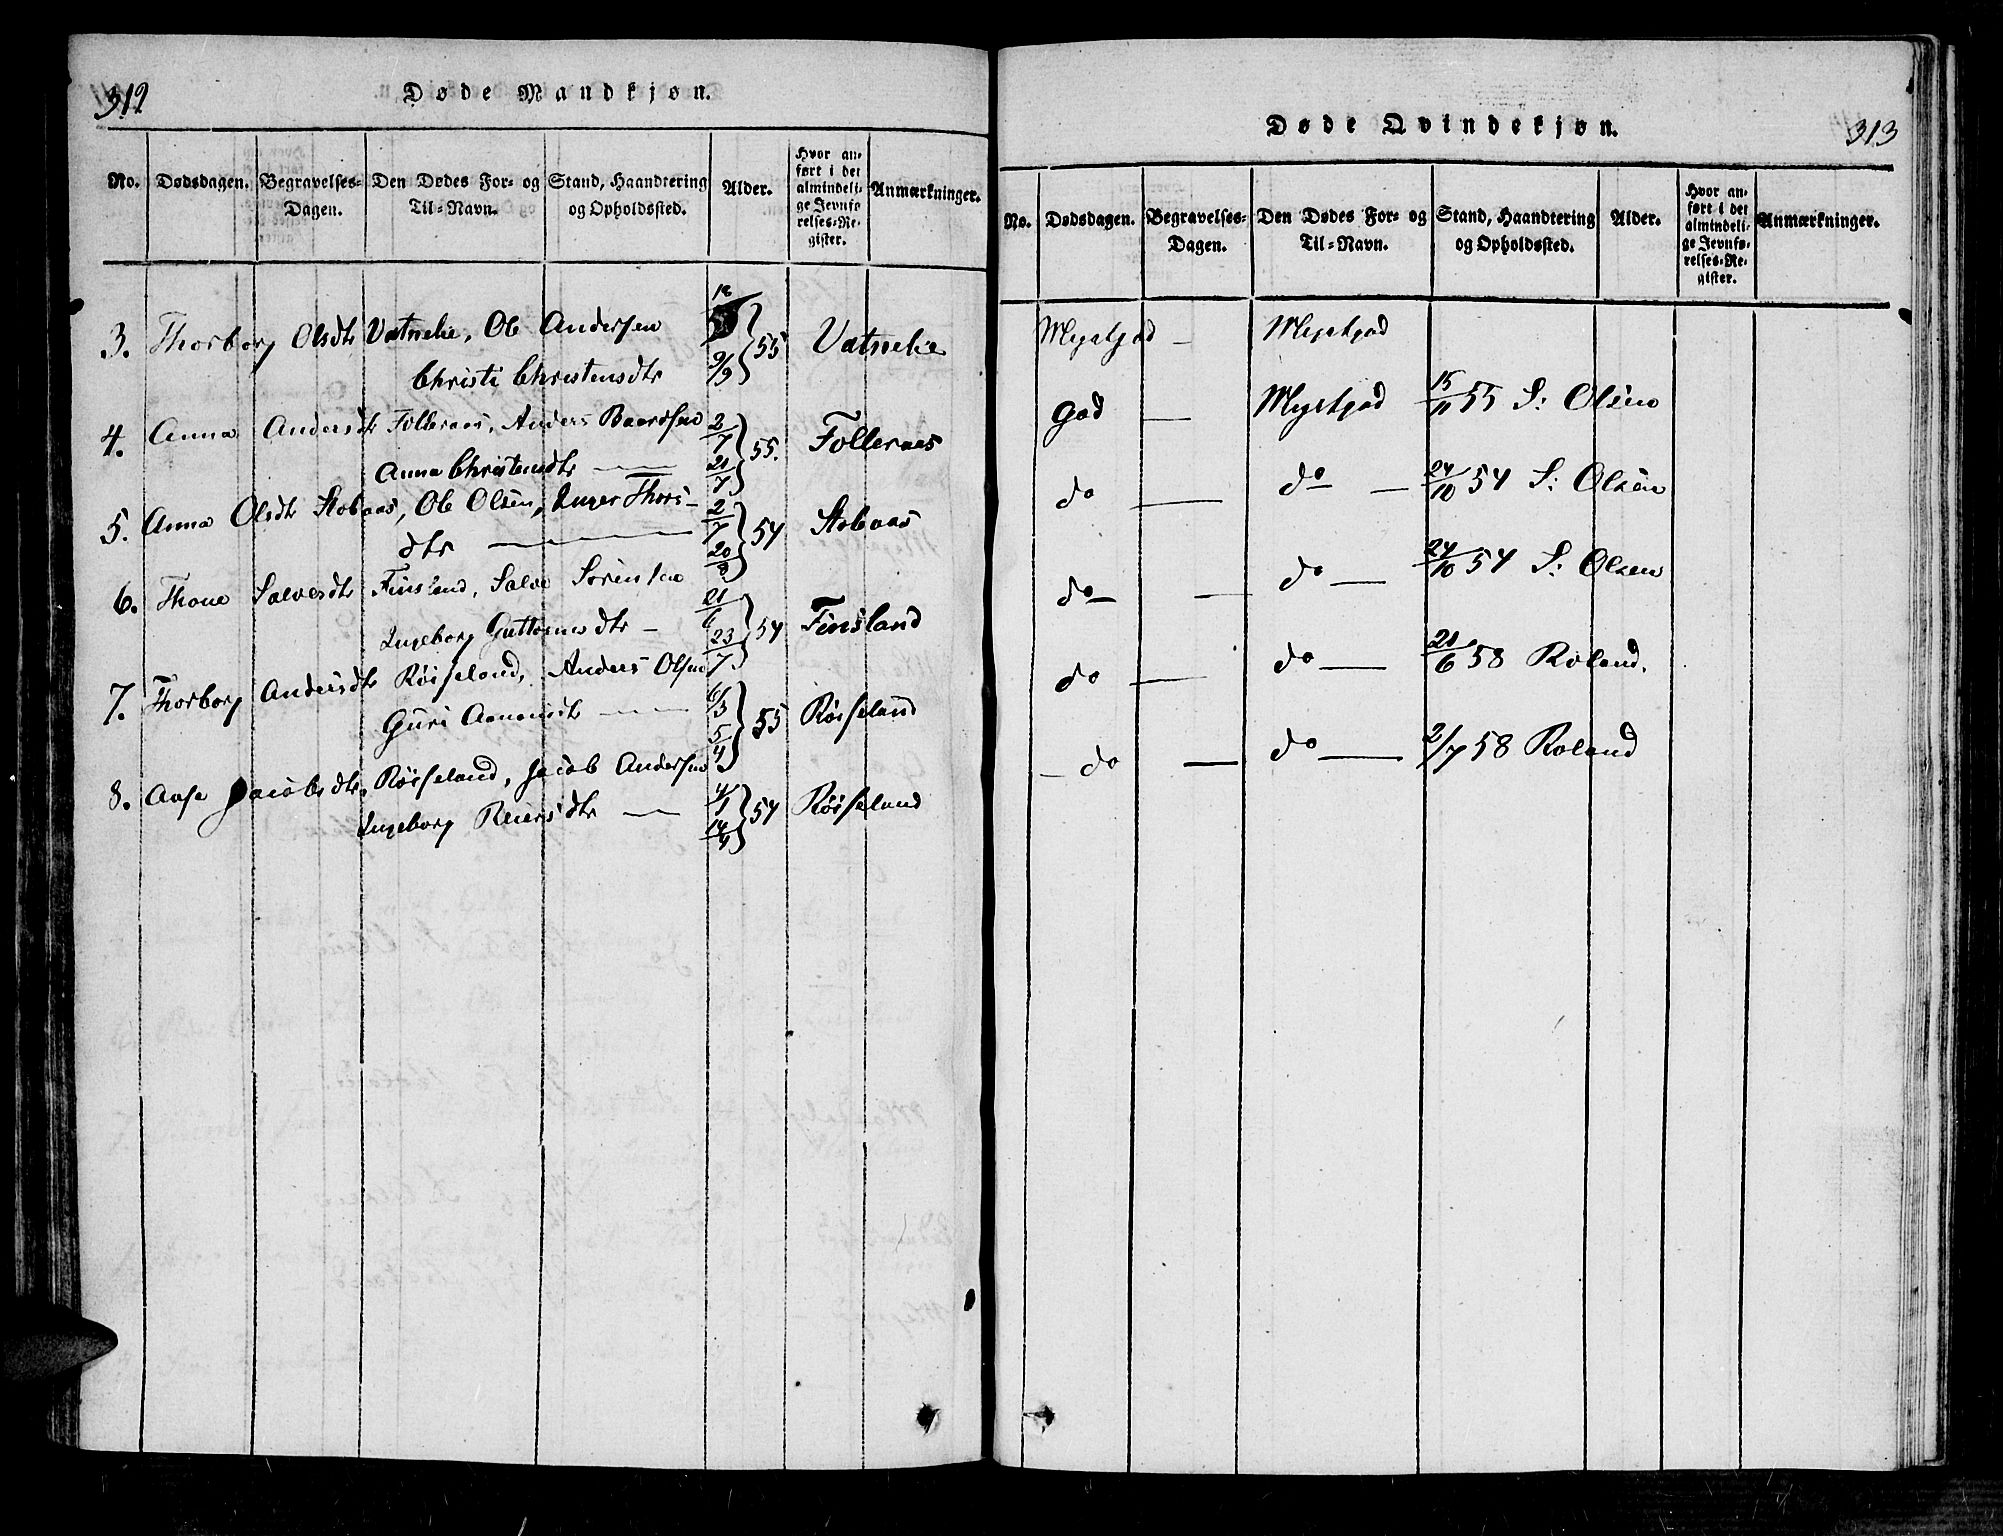 312
Døde Mandkjøn.
No. Dødsdagen. Begravelses-Dagen. Den Dødes For- og Til-Navn. Stand, Haandtering og Opholdssted. Alder. Hvor anført i det almindelige Jevnførelses-Register. Anmærkninger.
3. Thorborg Olsdtr Vatnelie, Ole Andersen 55 Vatnelie
Christi Christensdtr 9/9
4. Anna Andersdtr Folleraas, Anders Baardsen 2/7 55. Folleraas
Anna Christensdtr 21/7
5. Anna Olsdtr Stobaas, Ole Olsen, Inger Thors- 2/7 54 Stobaas
dtr
6. Thone Salvesdtr Finsland, Salve Sørensen 21/6 54 Finsland
Ingeborg Guttormsdtr 23/7
7. Thorborg Andersdtr Røiseland, Anders Olsen 6/3 55 Røiseland
Guri Aanensdtr 5/4
8. Aase Jacobsdtr Røiseland, Jacob Andersen 54 Røiseland
Ingeborg Reiersdtr
313
Døde Qvindekjøn.
No. Dødsdagen. Begravelses-Dagen. Den Dødes For- og Til-Navn. Stand, Haandtering og Opholdssted. Alder. Hvor anført i det almindelige Jevnførelses-Register. Anmærkninger.
Megetgod Megetgod
God Megetgod 15/11 55 S: Olsen
do do 24/10 54 S: Olsen
do do 24/10 54 S: Olsen
do do 21/6 58 Roland.
do do 2/7 58 Roland